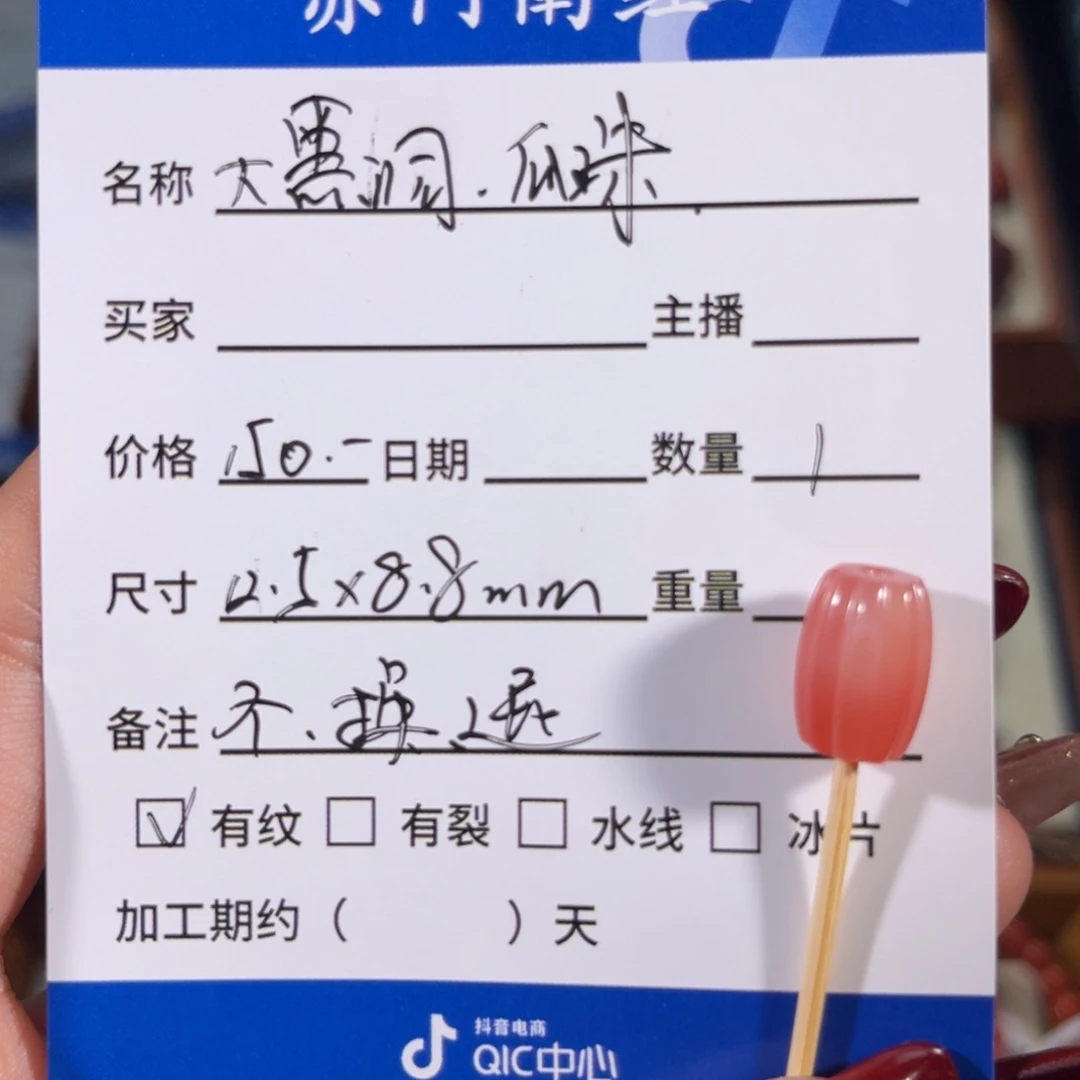 南红
名称 大黑洞.瓜珠
买家 主播
价格 150.- 日期 数量 1
尺寸 12.5×8.8mm 重量
备注 不.换.退
☑ 有纹 □ 有裂 □ 水线 □ 冰片
加工期约（ ）天
抖音电商
QIC中心